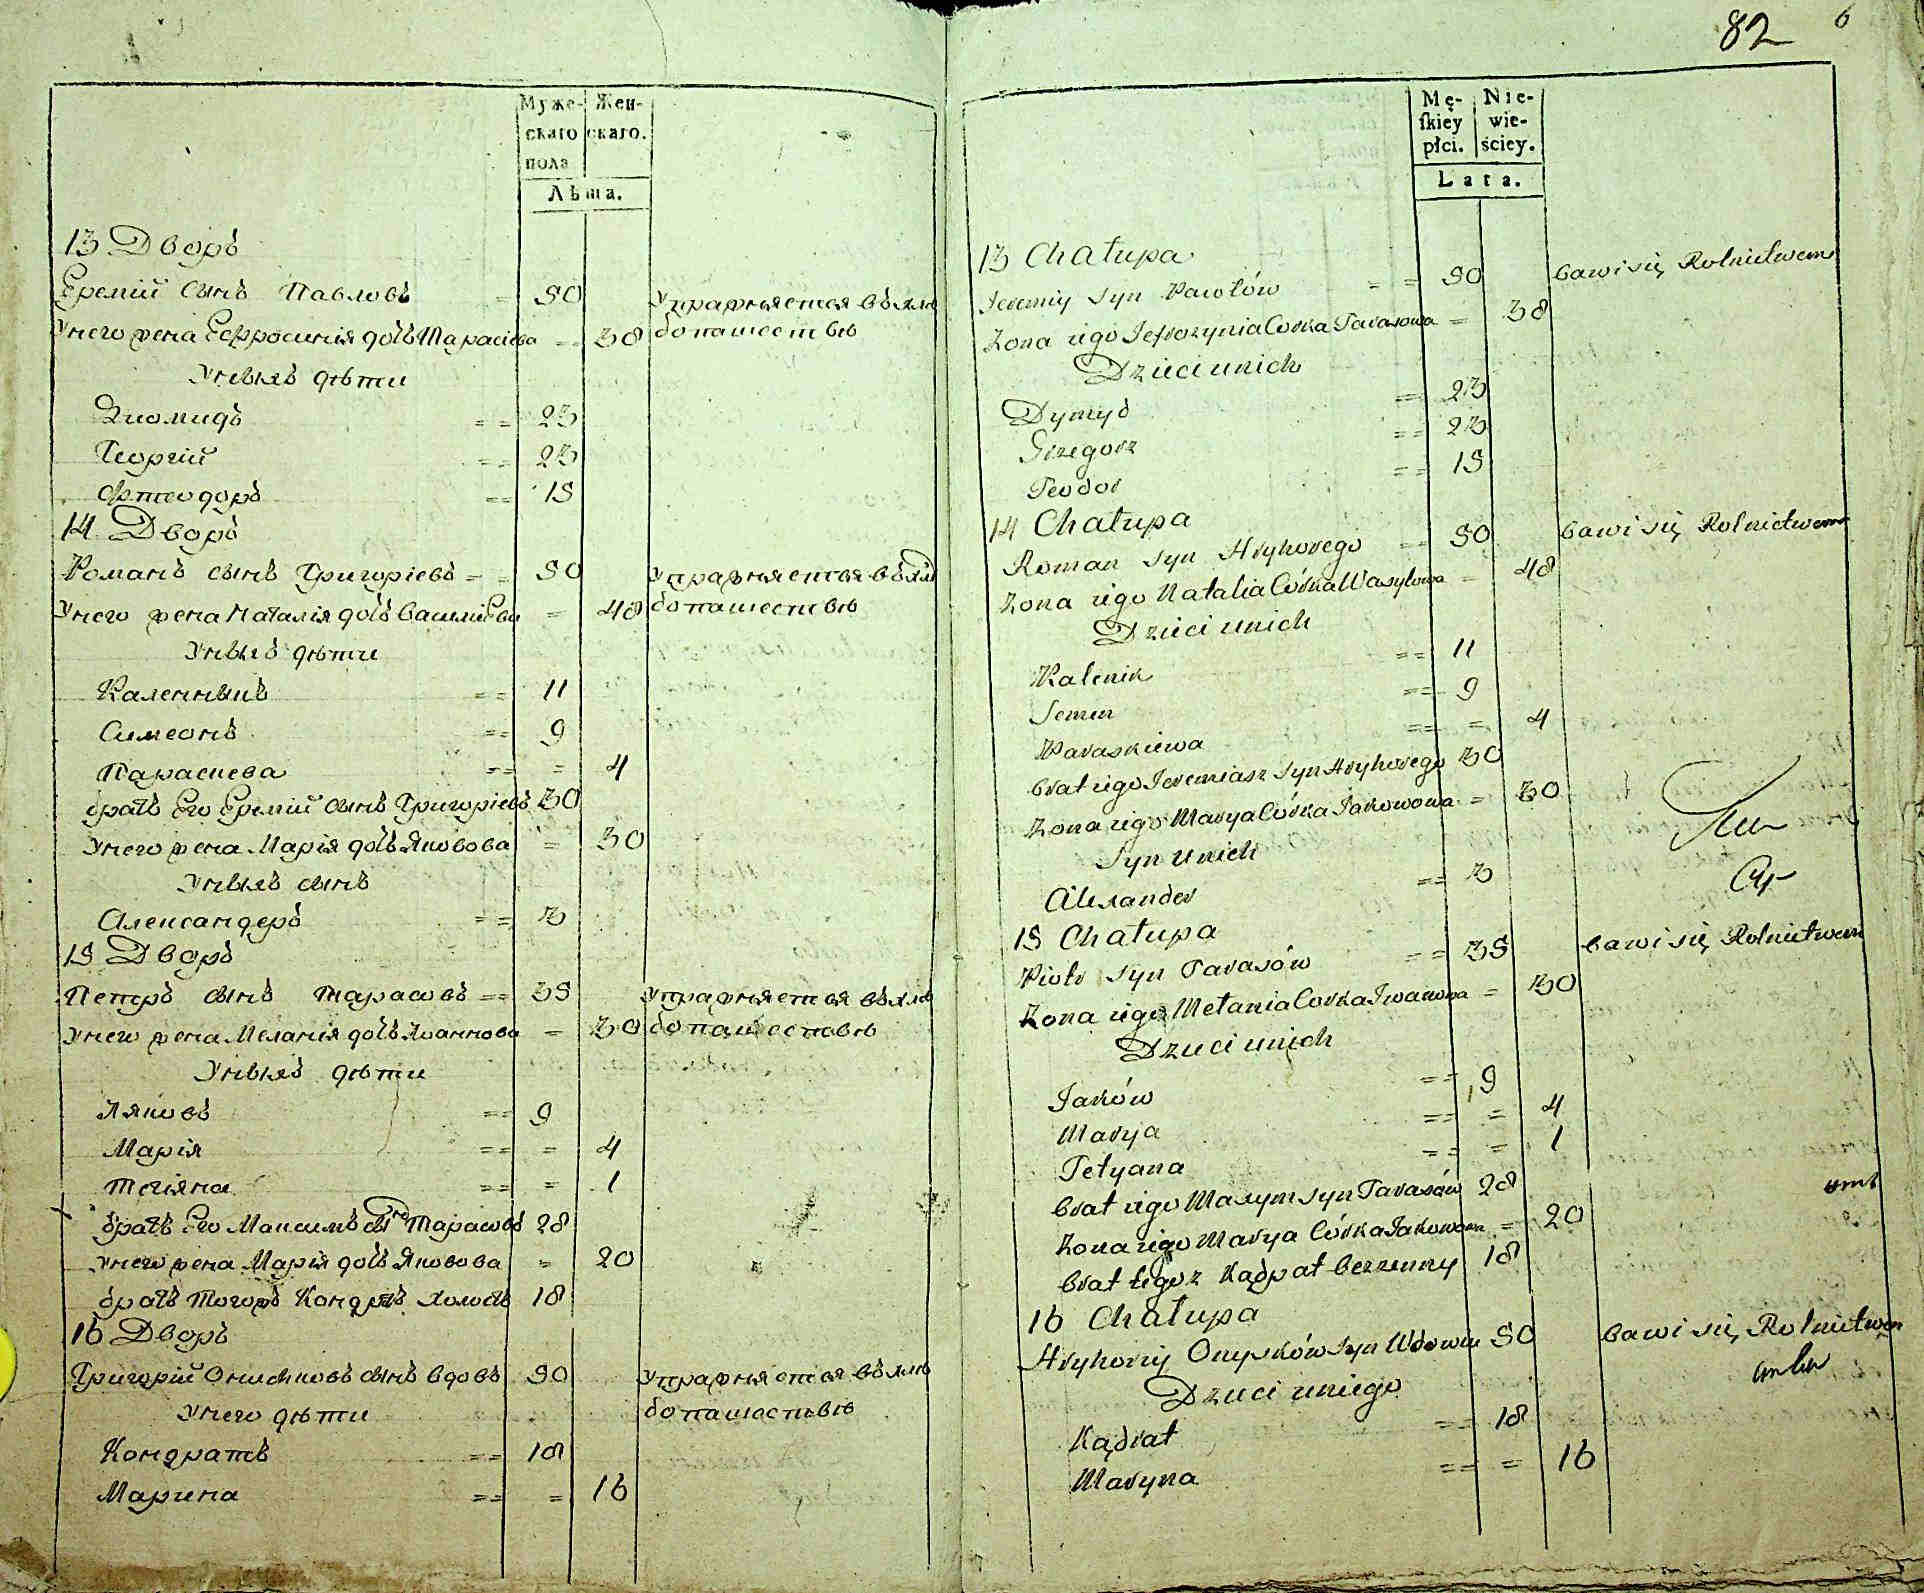 82 6
Муже-
скаго
пола
Жен-
скаго.
Лѣта.
13 Дворъ
Еремій сынъ Павловъ = 50 Упражняется въ хлѣ
Унего жена Ефросинія дочь Тарасіева = 38 бопашествѣ
Унихъ дѣти
Диомидъ == 23
Георгій == 23
Фтеодоръ == 15
14 Дворъ
Романъ сынъ Григоріевъ = = 50 Упражняется въ хлѣ
Унего жена Наталія дочь Василіева = 48 бопашествѣ
Унихъ дѣти
Каленикъ == 11
Симеонъ == 9
Параскева == = 4
братъ Его Еремій сынъ Григоріевъ 30
Унего жена Марія дочь Яковова = 30
Унихъ сынъ
Александеръ == 3
15 Дворъ
Петръ сынъ Тарасовъ == 35 Упражняется въ хлѣ
Унего жена Меланія дочь Иоаннова = 30 бопашествѣ
Унихъ дѣти
Яковъ == 9
Марія == = 4
Тетіяна == = 1
братъ Его Максимъ сынъ Тарасовъ 28
Унего жена Марія дочь Яковова = 20
братъ тогожъ Кондратъ холостъ 18
16 Дворъ
Григорій Ониськовъ сынъ вдовъ 50 Упражняется въ хлѣ
Унего дѣти бопашествѣ
Кондратъ == 18
Марина == = 16
Mę-
skiey
płci.
Nie-
wie-
ściey.
Lata.
13 Chałupa
Jeremiy syn Pawłów = = 50 bawi się Rolnictwem
Żona iego Jefrozynia Corka Tarasowa = 38
Dzieci unich
Dymyd == 23
Grzegorz == 23
Teodor == 15
14 Chałupa
Roman syn Hryhorego == 50 bawi się Rolnictwem
Żona iego Natalia Córka Wasylowa = 48
Dzieci unich
Kalenik == 11
Semen == 9
Paraskiewa == = 4
brat iego Jeremiasz syn Hryhorego 30
Żona iego Marya Córka Jakowowa = 30
Syn unich
Alexander == 3
15 Chałupa
Piotr syn Tarasów == 35 bawi się Rolnictwem
Żona iego Metania Corka Iwanowa = 30
Dzieci unich
Jaków == 9
Marya == = 4
Tetyana == = 1
brat iego Maxym syn Tarasów 28
Żona iego Marya Córka Jakowowa = 20
brat tegoż Kądrat bezżenny 18
16 Chałupa
Hryhoriy Onysków syn Wdowiec 50 bawi się Rolnictwem
Dzieci uniego
Kądrat == 18
Maryna == = 16